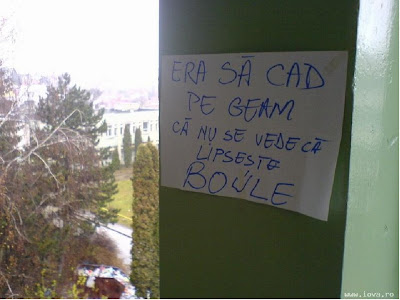 ERA SĂ CAD
PE GEAM
CĂ NU SE VEDE CĂ
LIPSEȘTE
BOULE
www.lova.ro